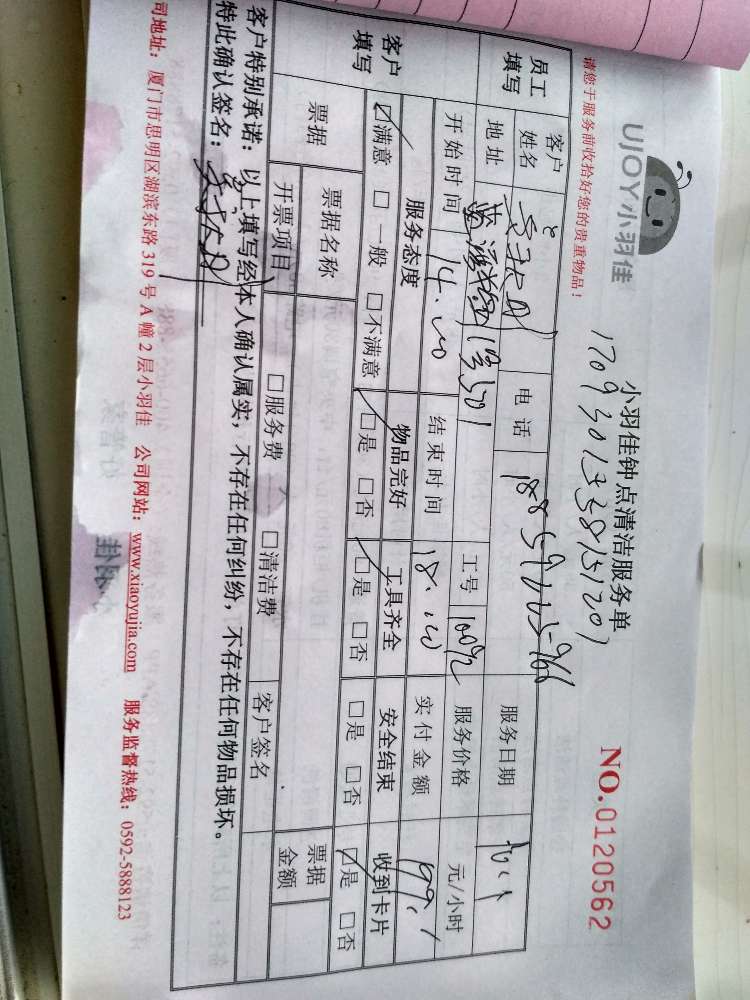 UJOY小羽佳
小羽佳钟点清洁服务单
NO.0120562
请您于服务前收拾好您的贵重物品！
员工填写 客户姓名 电话 服务日期
地址 501 工号 服务价格 元/小时
开始时间 14.00 结束时间 18.00 实付金额 199.1
客户填写 服务态度 物品完好 工具齐全 安全结束 收到卡片
☑满意 □一般 □不满意 ☑是 □否 ☑是 □否 □是 □否 ☑是 □否
票据 票据名称 □服务费 □清洁费 客户签名 票据金额
开票项目
客户特别承诺：以上填写经本人确认属实，不存在任何纠纷，不存在任何物品损坏。
特此确认签名：
司地址：厦门市思明区湖滨东路 319 号 A 幢 2 层小羽佳 公司网站：www.xiaoyujia.com 服务监督热线：0592-5888123